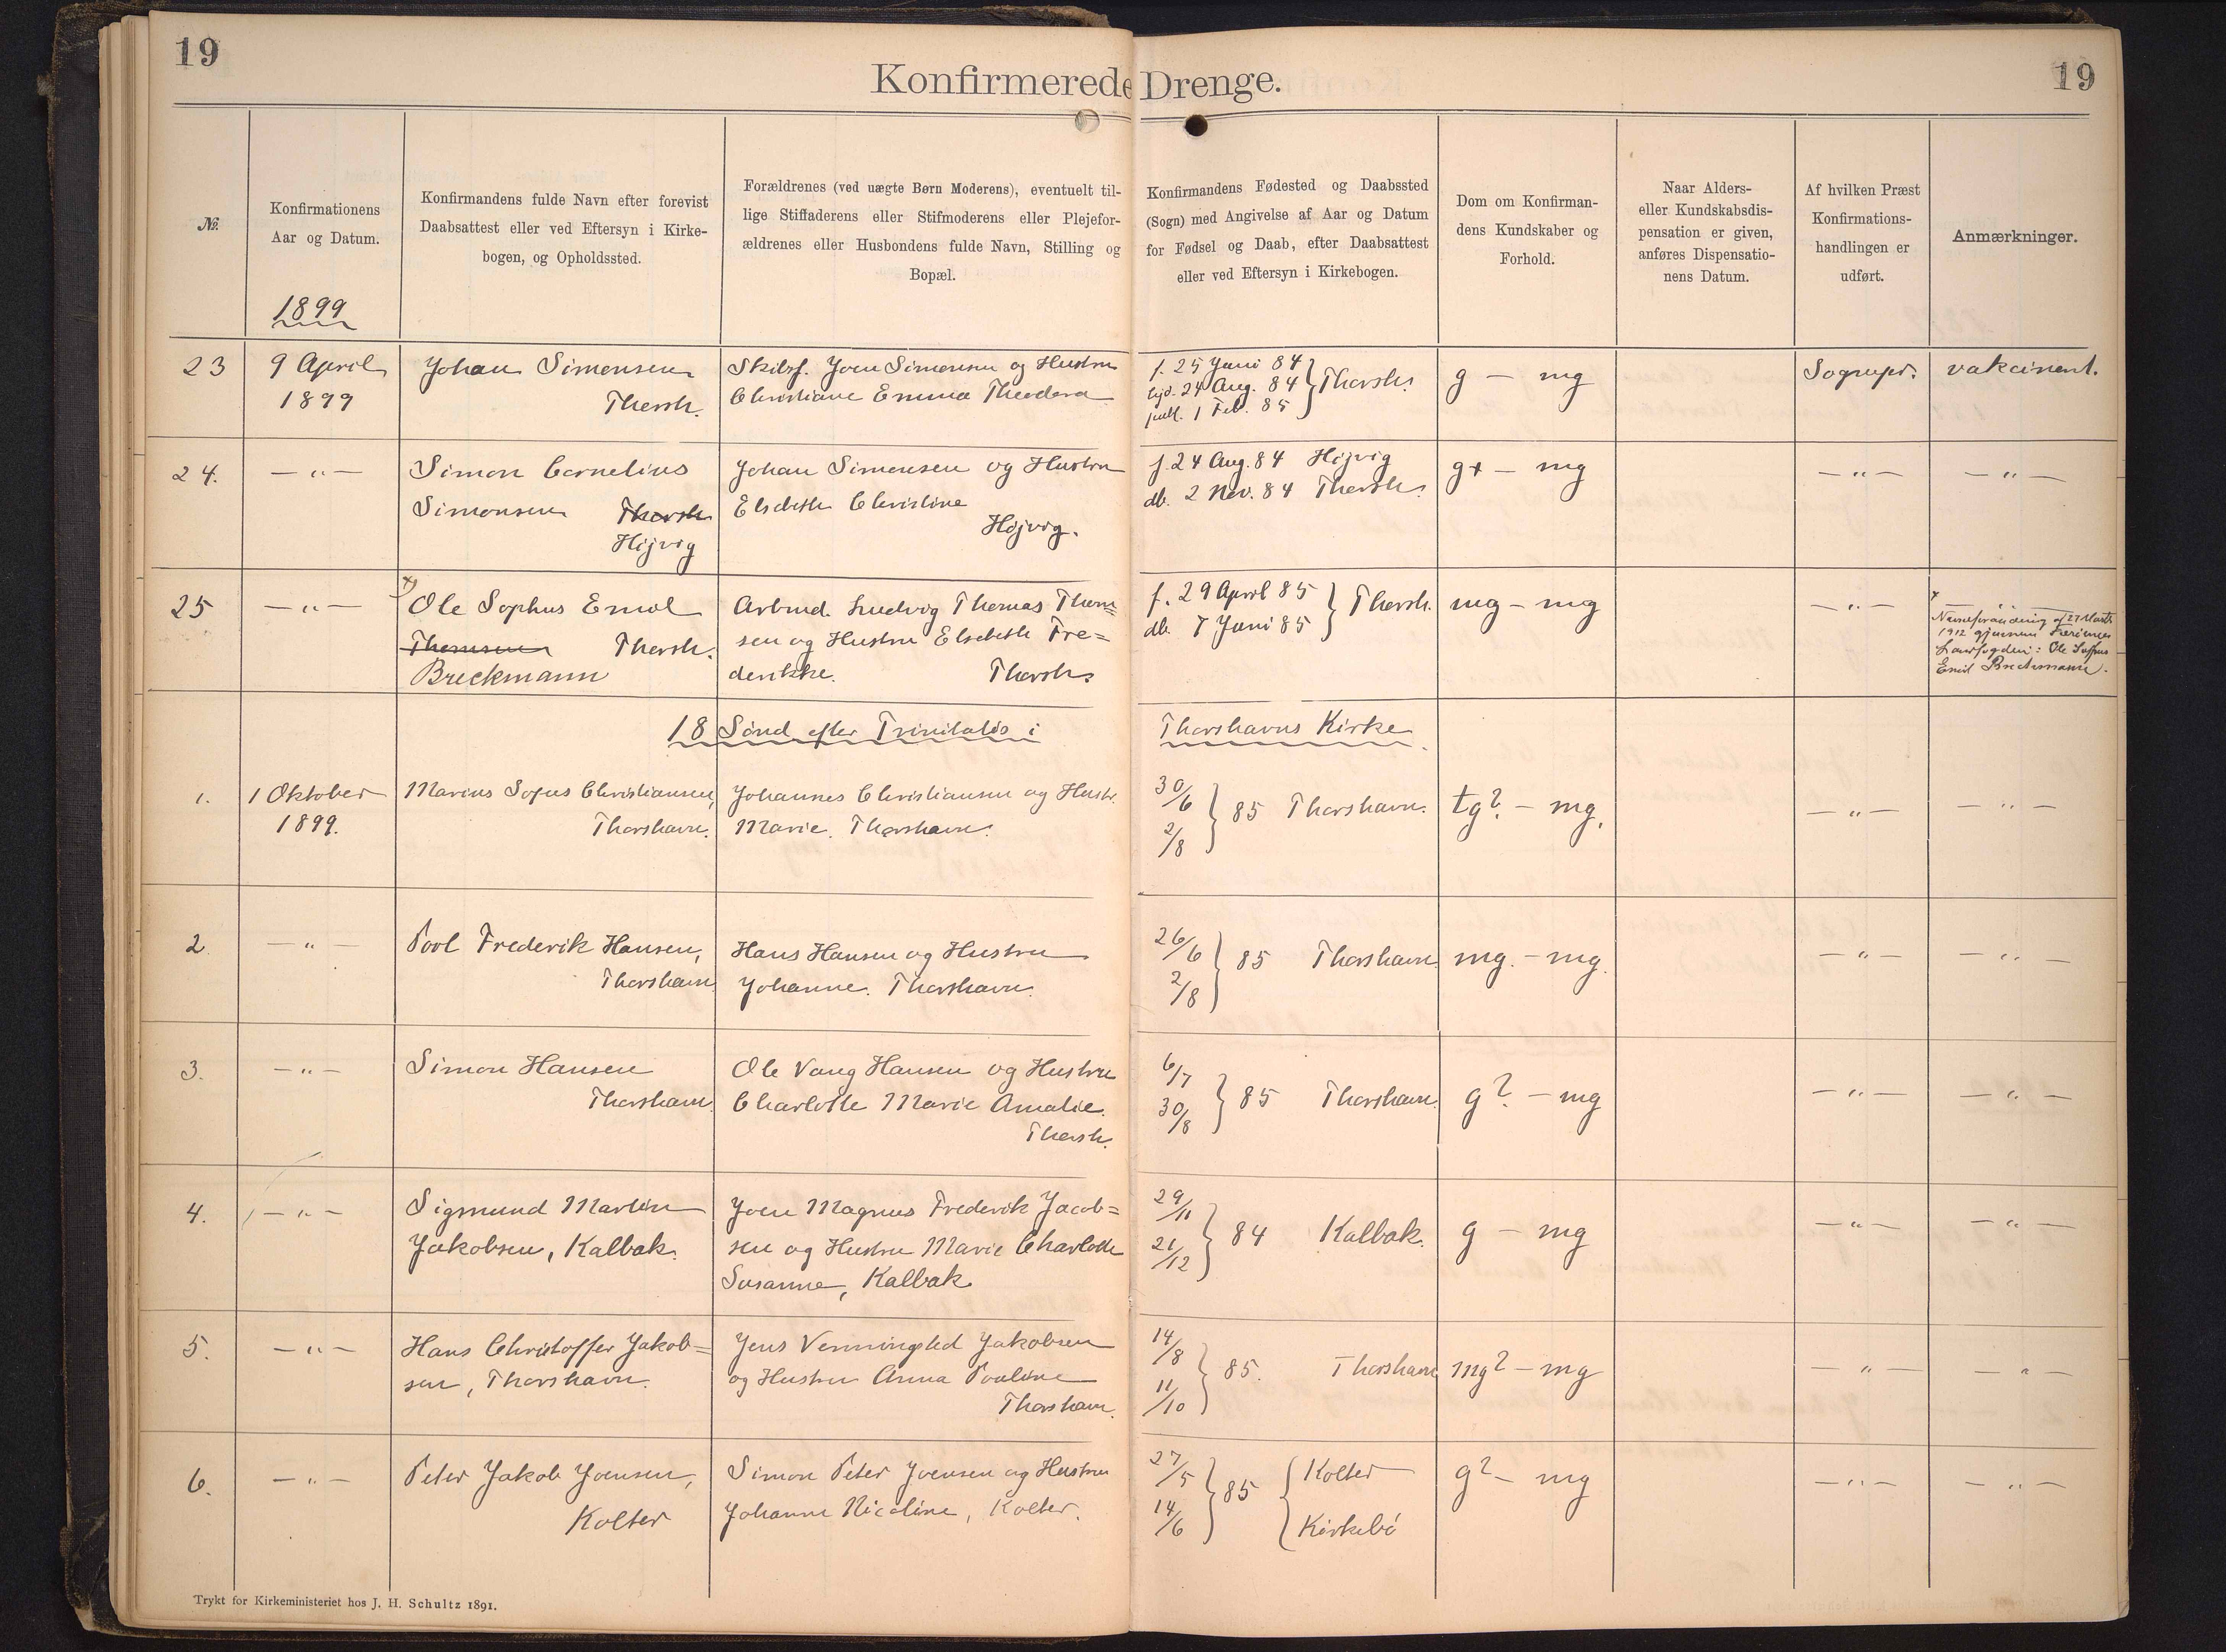 19
19
Konfirmerede Drenge.
№.
Konfirmationens
Aar og Datum.
Konfirmandens fulde Navn efter forevist
Daabsattest eller ved Eftersyn i Kirke-
bogen, og Opholdssted.
Forældrenes (ved uægte Børn Moderens), eventuelt til-
lige Stiffaderens eller Stifmoderens eller Plejefor-
ældrenes eller Husbondens fulde Navn, Stilling og
Bopæl.
Konfirmandens Fødested og Daabssted
(Sogn) med Angivelse af Aar og Datum
for Fødsel og Daab, efter Daabsattest
eller ved Eftersyn i Kirkebogen.
Dom om Konfirman-
dens Kundskaber og
Forhold.
Naar Alders-
eller Kundskabsdis-
pensation er given,
anføres Dispensatio-
nens Datum.
Af hvilken Præst
Konfirmations-
handlingen er
udført.
Anmærkninger.
1899
23
9 April
1899
Johan Simonsen
Thorsh.
Joen Simonsen og Hustru
Christiane Emma Theodora
f. 25 Juni 84
24 Aug. 84
1 Feb. 85
} Thorsh.
g — mg
Sognepr.
vakcineret.
24.
— „ —
Simon Cornelius
Simonsen Thorsh
Højvig
Johan Simonsen og Hustru
Elsebeth Christine
Højvig.
f. 24 Aug. 84 Højvig
db. 2 Nov. 84 Thorsh.
g+ — mg
— „ —
— „ —
25
— „ —
x) Ole Sophus Emil
Thomsen Thorsh.
Breckmann
Arbmd. Ludvig Thomas Thom=
sen og Hustru Elsebeth Fre=
derikke. Thorsh.
f. 29 April 85
db. 7 Juni 85
} Thorsh.
mg — mg
— „ —
x
Navneforandring af 27 Marts
1912 gjennem Færøernes
Landfogderi: Ole Sofus
Emil Breckmann.
18 Sønd. efter Trinitatis i Thorshavns Kirke.
1.
1 Oktober
1899.
Marius Sofus Christiansen,
Thorshavn.
Johannes Christiansen og Hustr.
Marie. Thorshavn.
30/6
2/8
} 85 Thorshavn.
tg? — mg.
— „ —
— „ —
2
— „ —
Poul Frederik Hansen,
Thorshavn
Hans Hansen og Hustru
Johanne. Thorshavn.
26/6
2/8
} 85 Thorshavn.
mg. — mg.
— „ —
— „ —
3.
— „ —
Simon Hansen
Thorshavn.
Ole Vang Hansen og Hustru
Charlotte Marie Amalie.
Thorsh.
6/7
30/8
} 85 Thorshavn.
g? — mg
— „ —
— „ —
4.
— „ —
Sigmund Martin
Jakobsen, Kalbak.
Joen Magnus Frederik Jacob=
sen og Hustru Marie Charlotte
Susanne, Kalbak
29/11
21/12
} 84 Kalbak.
g — mg
— „ —
— „ —
5.
— „ —
Hans Christoffer Jakob=
sen, Thorshavn.
Jens Venningsted Jakobsen
og Hustru Anna Pouline
Thorshavn.
14/8
11/10
} 85. Thorshavn
mg? — mg
— „ —
— „ —
6.
— „ —
Peter Jakob Joensen,
Kolter
Simon Peter Joensen og Hustru
Johanne Nicoline, Kolter.
27/5
14/6
} 85 { Kolter
Kirkebø
g? — mg
— „ —
— „ —
Trykt for Kirkeministeriet hos J. H. Schultz 1891.